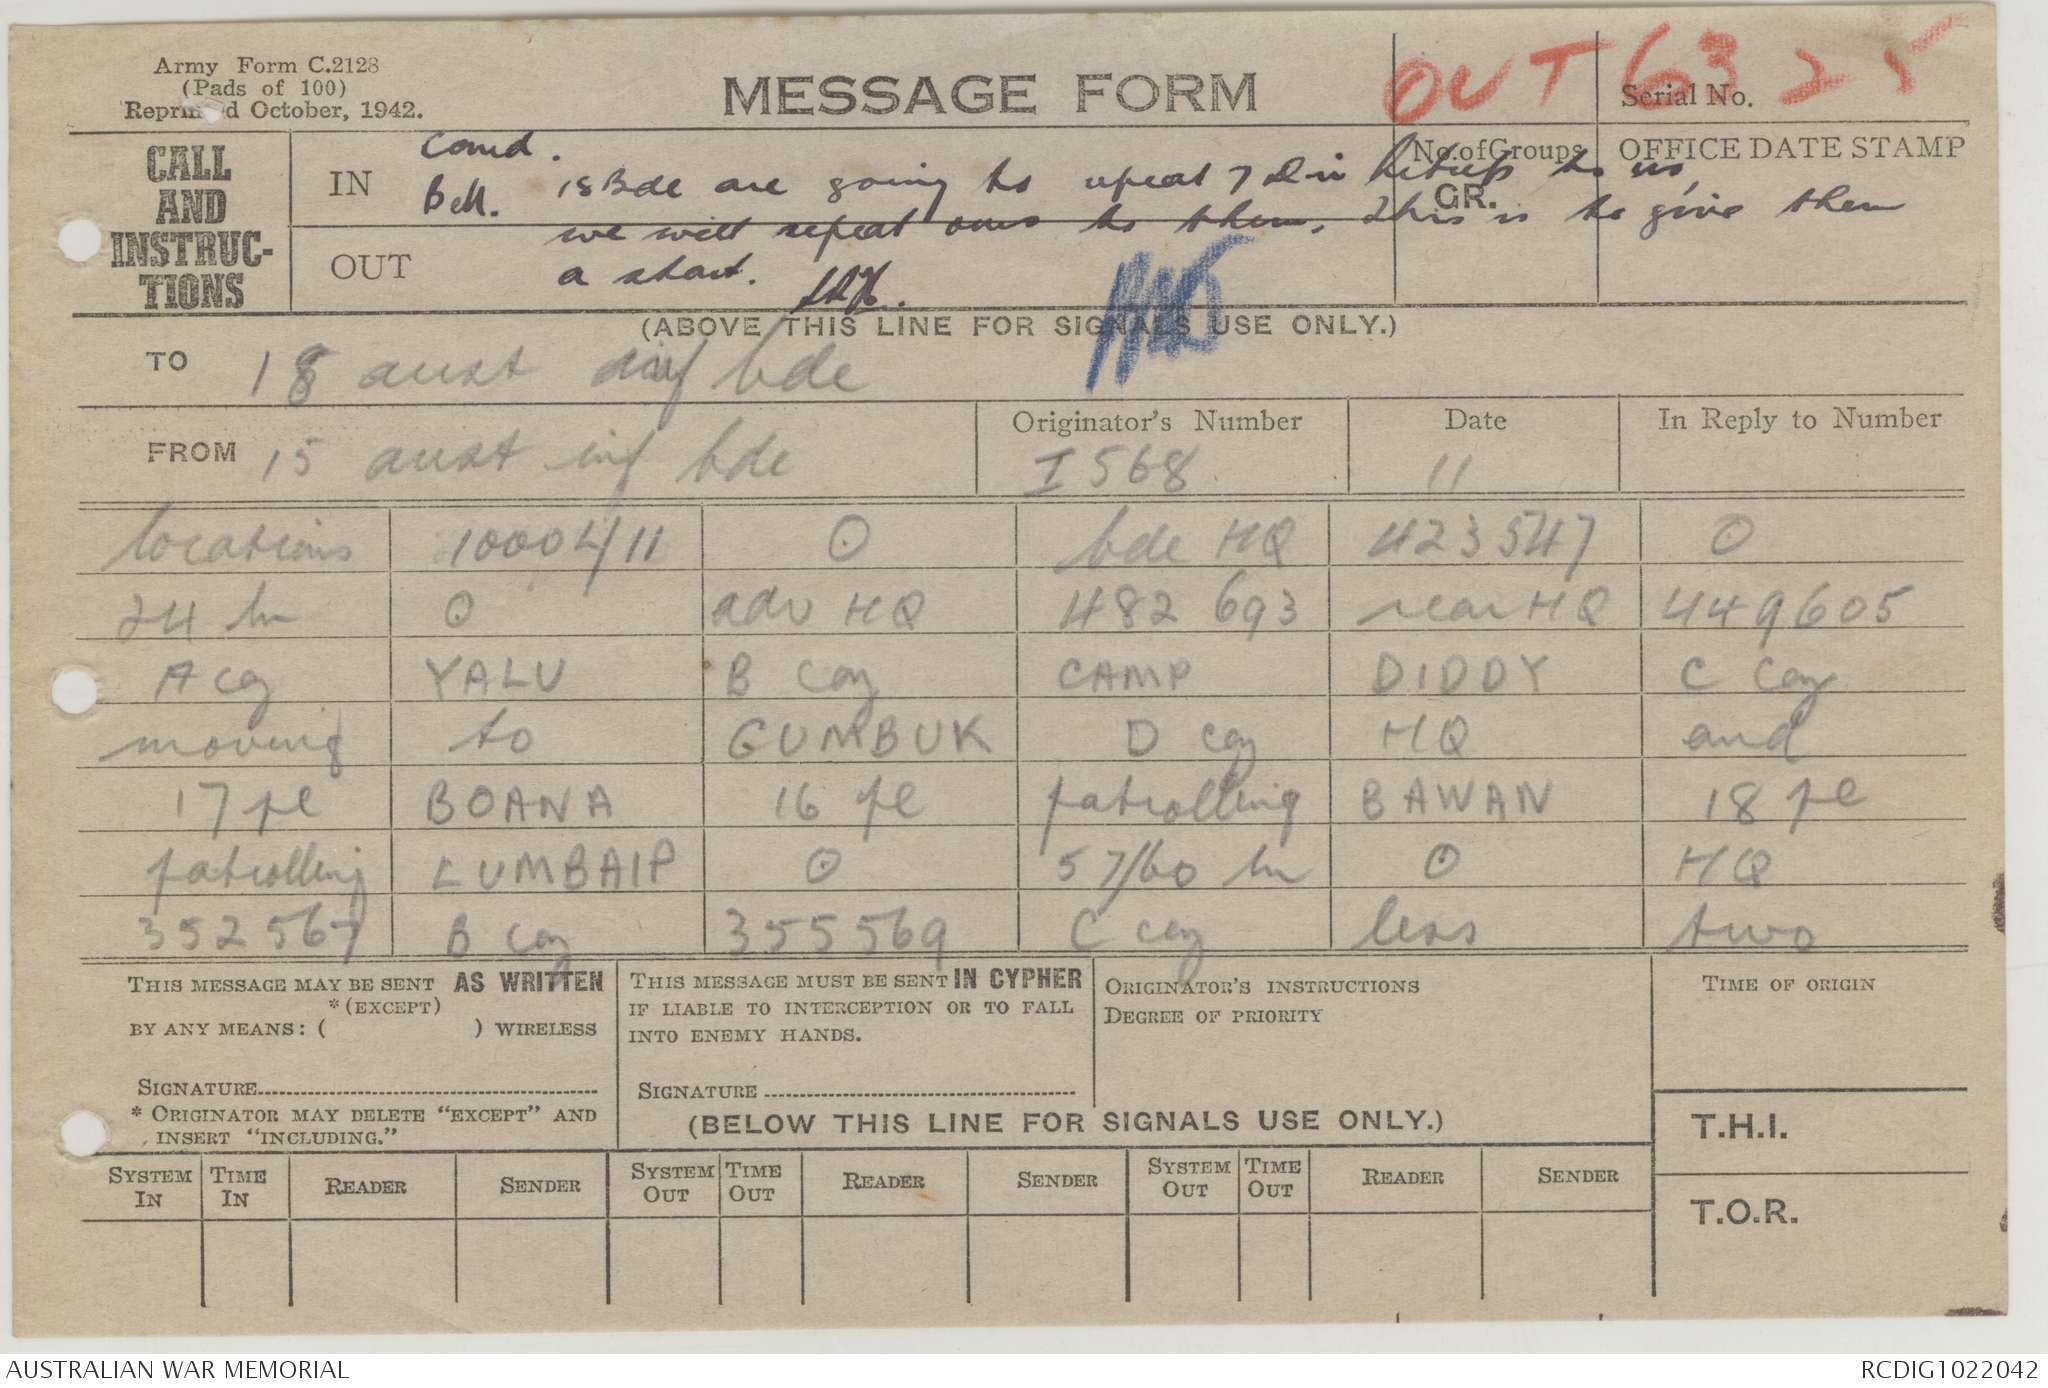 Army Form C.2128
(Pads of 100)
Reprinted October, 1942.
MESSAGE FORM
OUT 63 25
Serial No.
CALL AND INSTRUCTIONS
IN
OUT
No. of Groups
GR.
OFFICE DATE STAMP
Comd.
Bell. 18 Bde are going to repeat 7 Div to us,
we will repeat ours to them. This is to give them
a start.
(ABOVE THIS LINE FOR SIGNALS USE ONLY.)
TO 18 aust inf bde
FROM 15 aust inf bde
Originator's Number
I 568
Date
11
In Reply to Number
locations 1000L/11 ⊙ bde HQ 423547 ⊙
24 bn ⊙ adv HQ 482 693 rear HQ 449605
A coy YALU B coy CAMP DIDDY C coy
moving to GUMBUK D coy HQ and
17 pl BOANA 16 pl patrolling BAWAN 18 pl
patrolling LUMBAIP ⊙ 57/60 bn ⊙ HQ
352567 B coy 355569 C coy less two
THIS MESSAGE MAY BE SENT AS WRITTEN
*(EXCEPT)
BY ANY MEANS: ( ) WIRELESS
SIGNATURE
* ORIGINATOR MAY DELETE "EXCEPT" AND
INSERT "INCLUDING."
THIS MESSAGE MUST BE SENT IN CYPHER
IF LIABLE TO INTERCEPTION OR TO FALL
INTO ENEMY HANDS.
SIGNATURE
ORIGINATOR'S INSTRUCTIONS
DEGREE OF PRIORITY
TIME OF ORIGIN
(BELOW THIS LINE FOR SIGNALS USE ONLY.)
T.H.I.
T.O.R.
SYSTEM IN TIME IN READER SENDER SYSTEM OUT TIME OUT READER SENDER SYSTEM OUT TIME OUT READER SENDER
AUSTRALIAN WAR MEMORIAL
RCDIG1022042